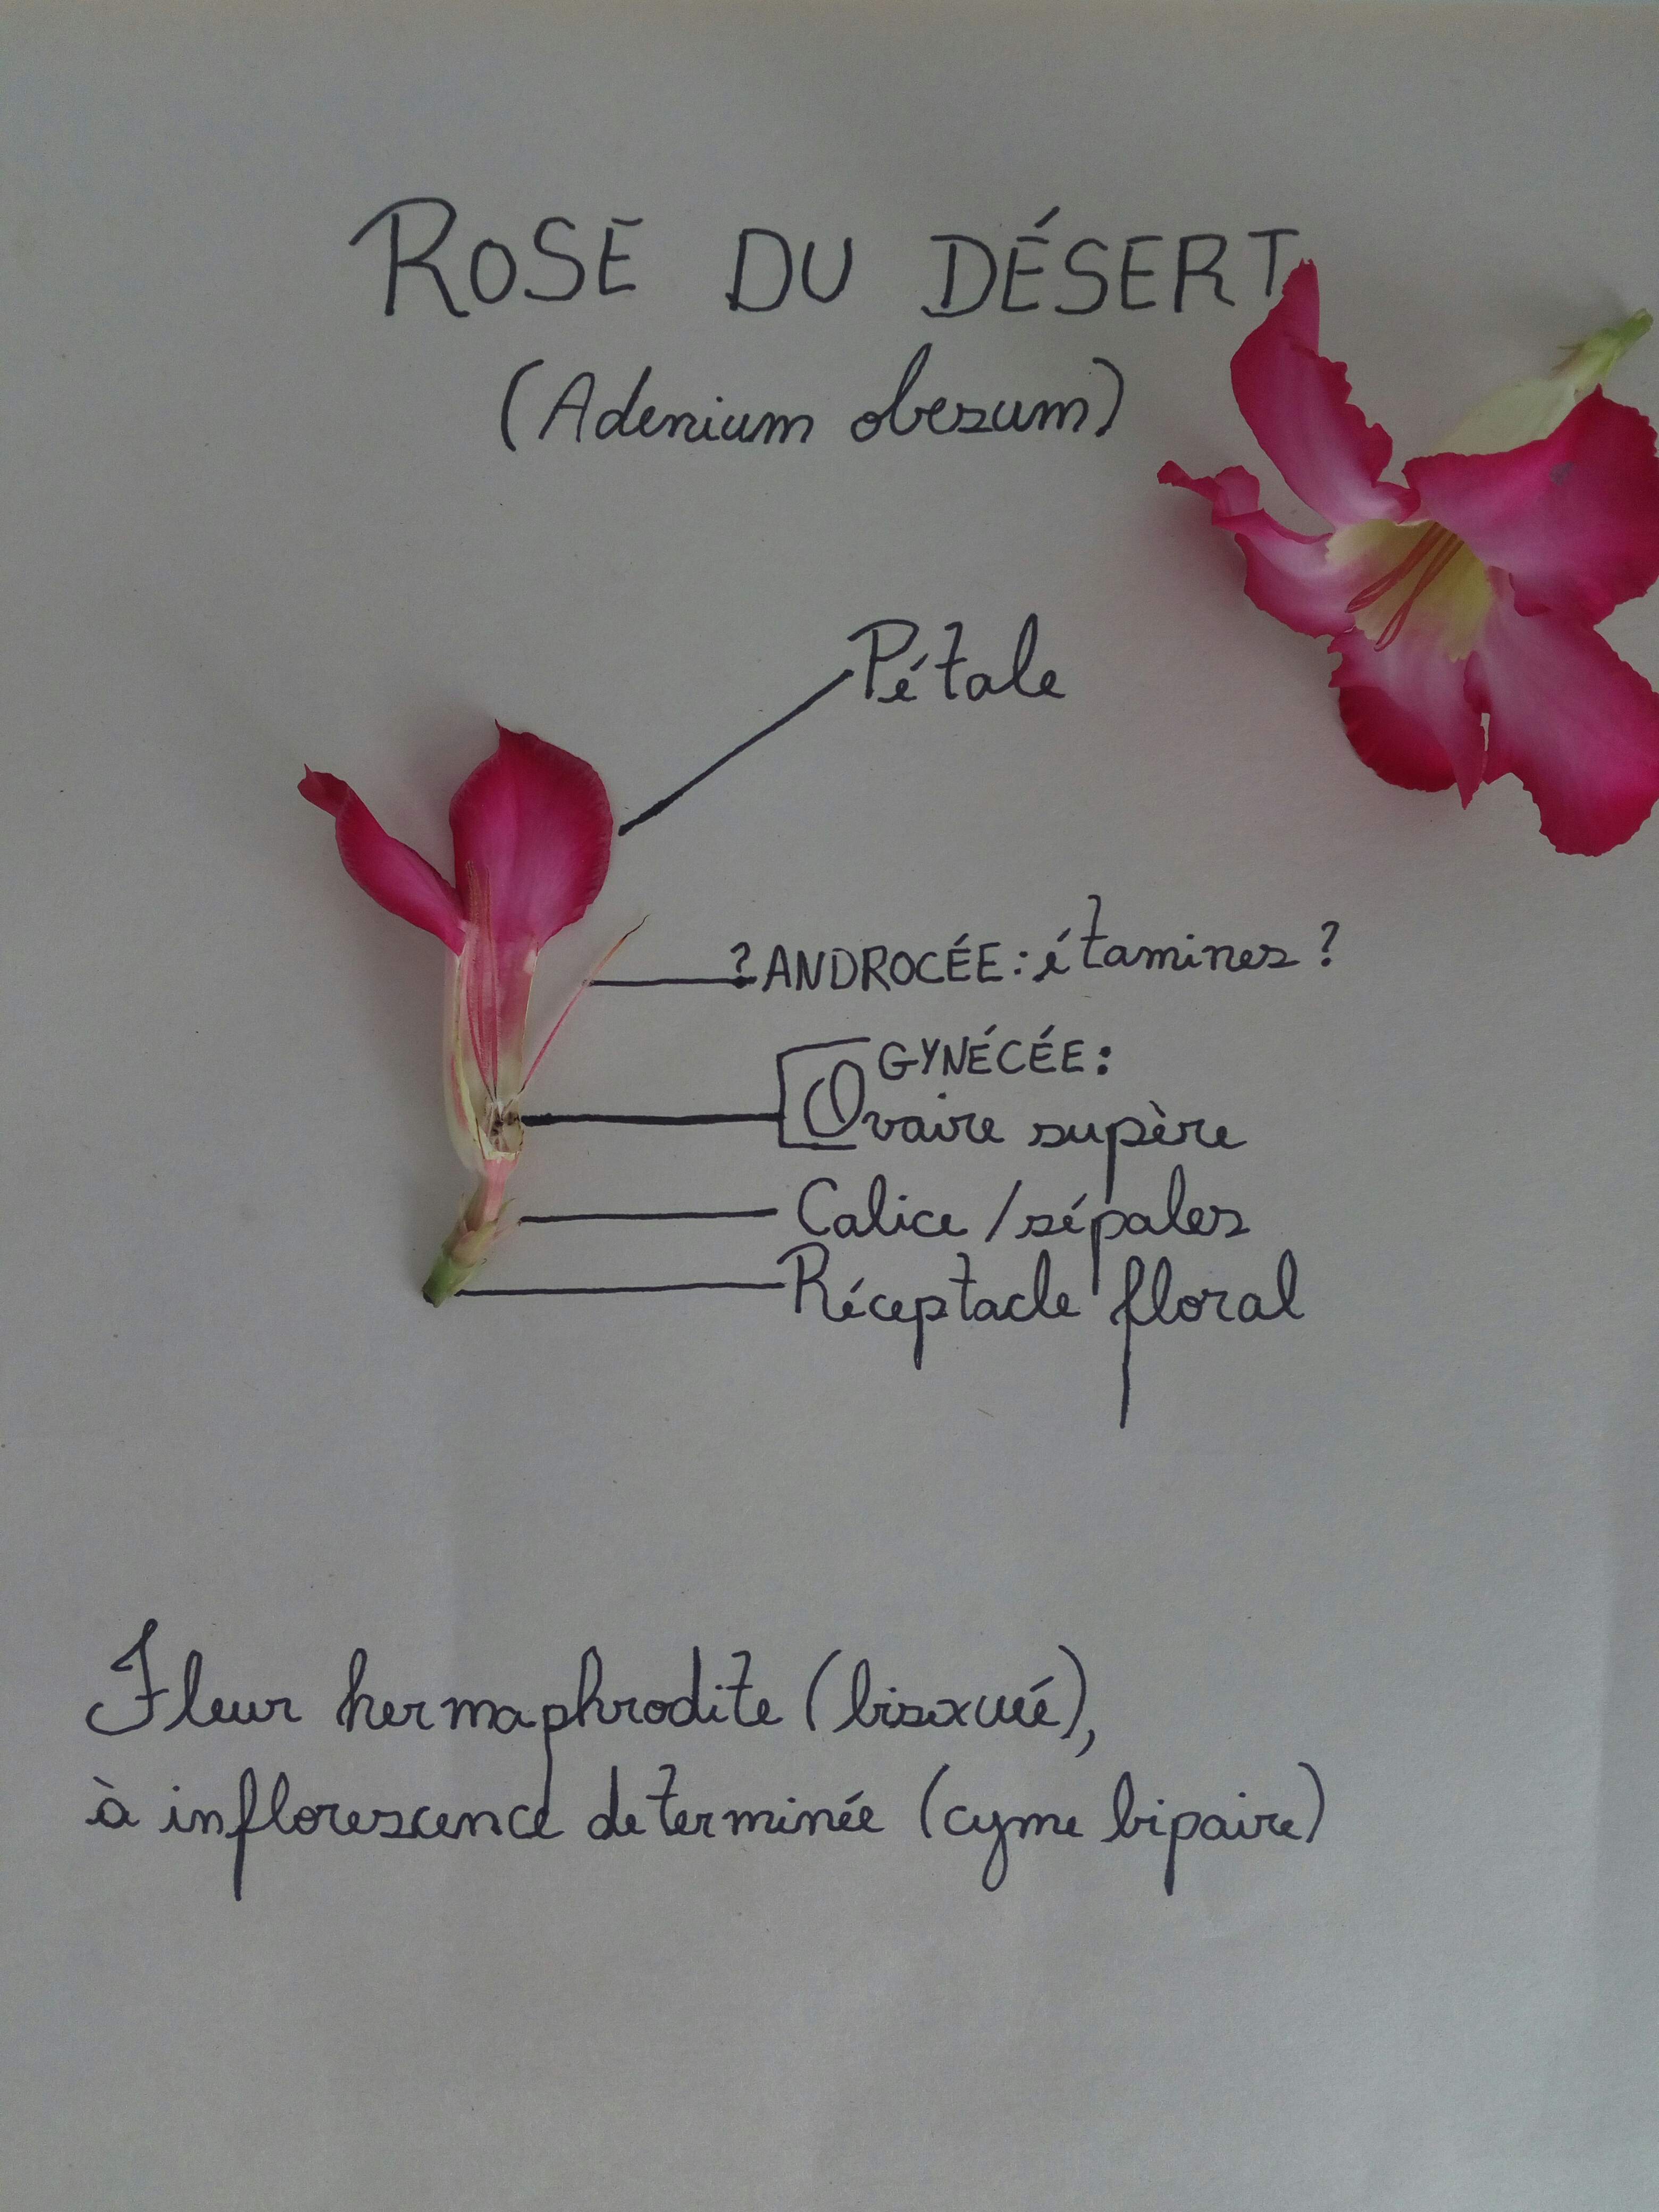 ROSE DU DÉSERT
(Adenium obesum)
Pétale
? ANDROCÉE: étamines ?
GYNÉCÉE:
Ovaire supère
Calice / sépales
Réceptacle floral
Fleur hermaphrodite (bisexué),
à inflorescence determinée (cyme bipaire)